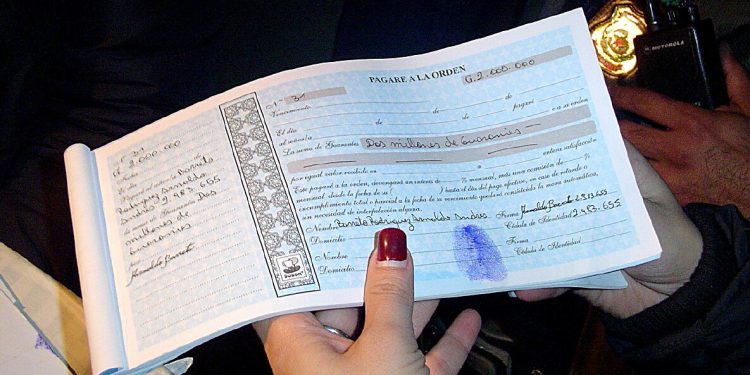 PAGARE A LA ORDEN
G. 2.000.000
Nº 31
Vencimiento
El día de de pagaré
al señor/a o a su orden
La suma de Guaraníes Dos millones de Guaranies
por igual valor recibido en a entera satisfacción
Este pagaré a la orden, devengará un interés de % mensual, más una comisión de
mensual desde la fecha de su ( ) hasta el día del pago efectivo, en caso de retardo o
incumplimiento total o parcial a la fecha de su vencimiento quedará constituida la mora automática,
sin necesidad de interpelación alguna.
Nombre Rodriguez Arnaldo Andres
Firma
Domicilio
Cédula de Identidad 2.483.655
Nombre
Firma
Domicilio
Cédula de Identidad
31
2.000.000
El día
Rodriguez Arnaldo
Andres 2.483.655
de Guaraníes Dos
millones de
Guaranies
MOTOROLA